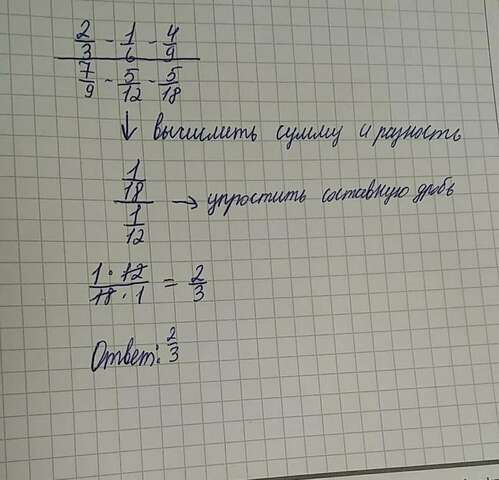 2/3 - 1/6 - 4/9
7/9 - 5/12 - 5/18
↓ вычислить сумму и разность
1/18
1/12 → упростить составную дробь
1 · 12 / 18 · 1 = 2/3
Ответ: 2/3